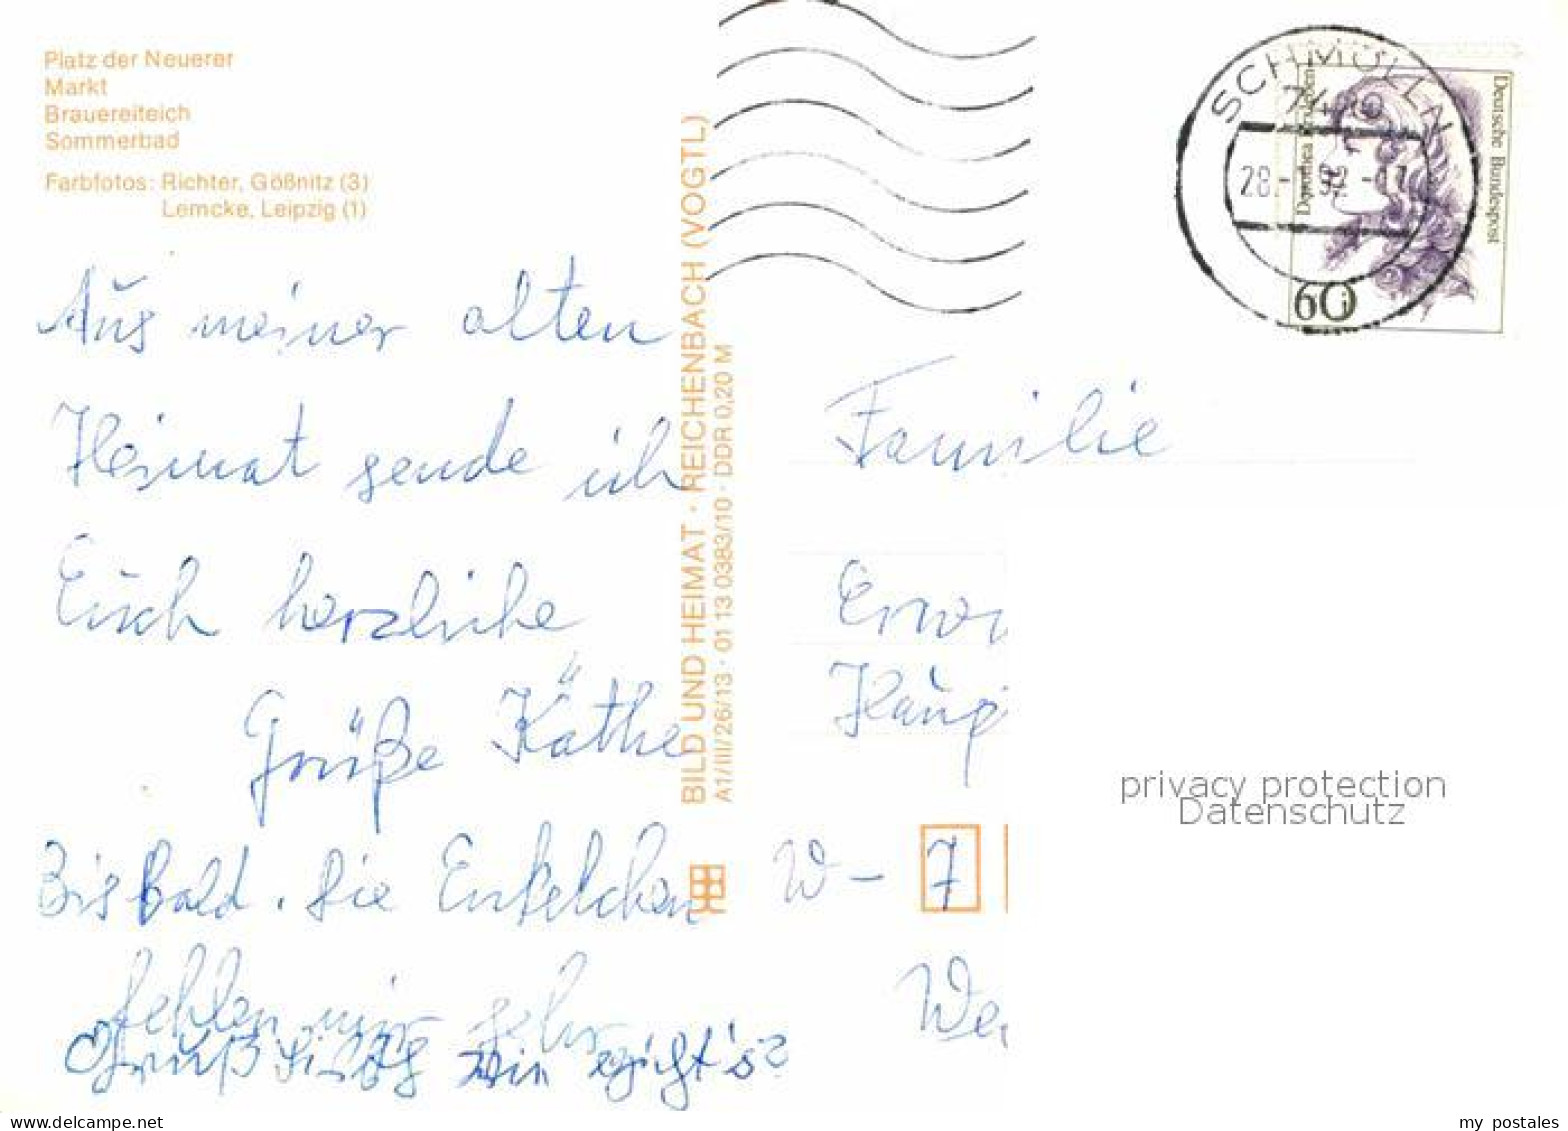 Platz der Neuerer
Markt
Brauereiteich
Sommerbad
Farbfotos: Richter, Gößnitz (3)
Lemcke, Leipzig (1)
Aus meiner alten
Heimat sende ich
Euch herzliche
Grüße Käthe
Bis Bald. Die Enkelchen
fehlen mir sehr
Gruß wie geht's?
BILD UND HEIMAT · REICHENBACH (VOGTL)
A1/III/26/13 · 01 13 0383/10 · DDR 0,20 M
SCHMÖLLN
7420
28.- 92 -
Deutsche Bundespost
Dorothea Erxleben
60
Familie
Erwi
Haup
W - 7
We
privacy protection
Datenschutz
my postales